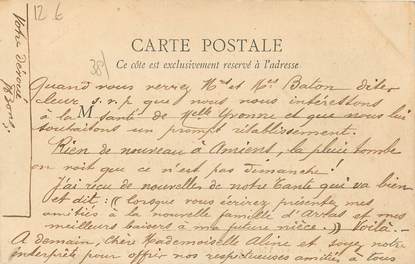 12.6
38
CARTE POSTALE
Ce côté est exclusivement reservé à l'adresse
M
Quand vous verrez Mr et Mes Baton dites
leur s.v.p que nous nous intéressons
à la santé de Melle Yvonne et que nous lui
souhaitons un prompt rétablissement.
Rien de nouveau à Amiens, la pluie tombe
on voit que ce n'est pas demanche!
J'ai reçu de nouvelles de notre tante qui va bien
et dit: "lorsque vous écrirez présentez mes
amitiés à la nouvelle famille d'Artas et mes
meilleurs baisers à ma future nièce." Voilà.—
A demain, chère Mademoiselle Aline et soyez notre
interprète pour offrir nos respectueuses amitiés à tous
Votre dévoué